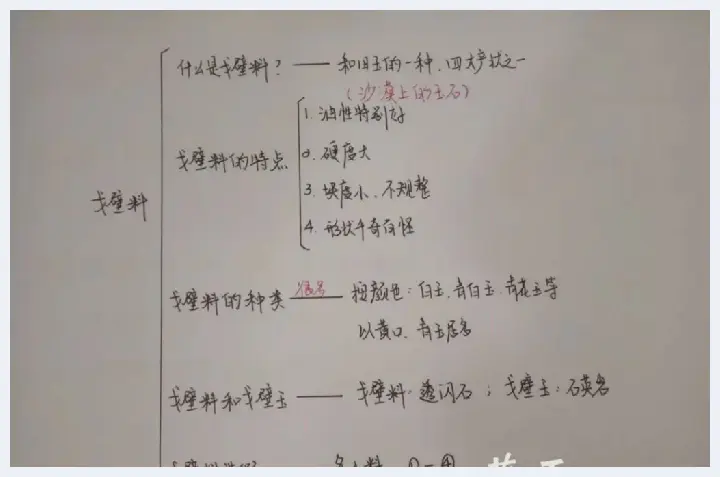 什么是戈壁料？ —— 和田玉的一种、四大产状之一
（沙漠上的玉石）
戈壁料的特点
1. 油性特别好
2. 硬度大
3. 块度小、不规整
4. 形状千奇百怪
戈壁料
戈壁料的种类 —— 按颜色：白玉、青白玉、青花玉等
很多
以黄口、青玉居多
戈壁料和戈壁玉 —— 戈壁料：透闪石；戈壁玉：石英名